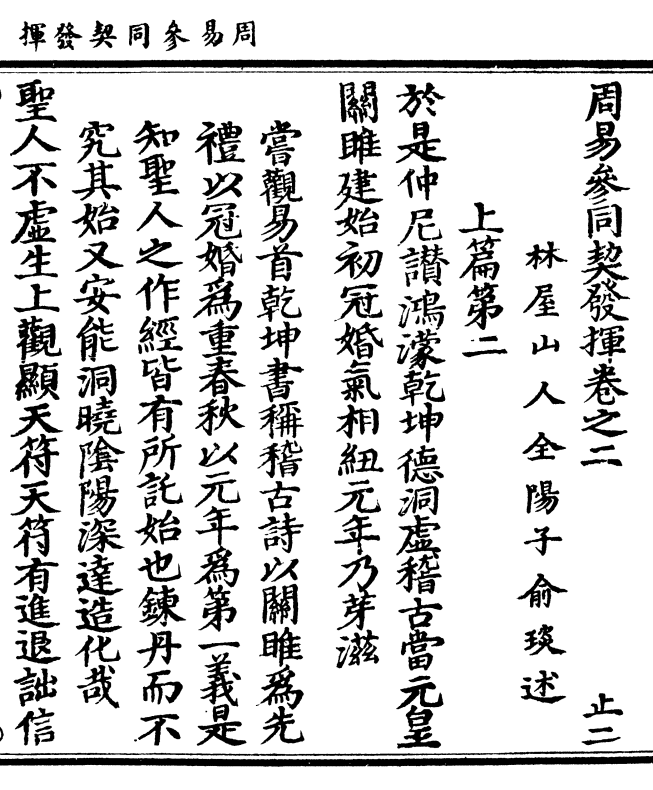 周易參同契發揮
周易參同契發揮卷之二 止二
林屋山人全陽子俞琰述
上篇第二
於是仲尼讃鴻濛乾坤德洞虛稽古當元皇
關雎建始初冠婚氣相紐元年乃芽滋
嘗觀易首乾坤書稱稽古詩以關雎爲先
禮以冠婚爲重春秋以元年爲第一義是
知聖人之作經皆有所託始也鍊丹而不
究其始又安能洞曉陰陽深達造化哉
聖人不虛生上觀顯天符天符有進退詘信